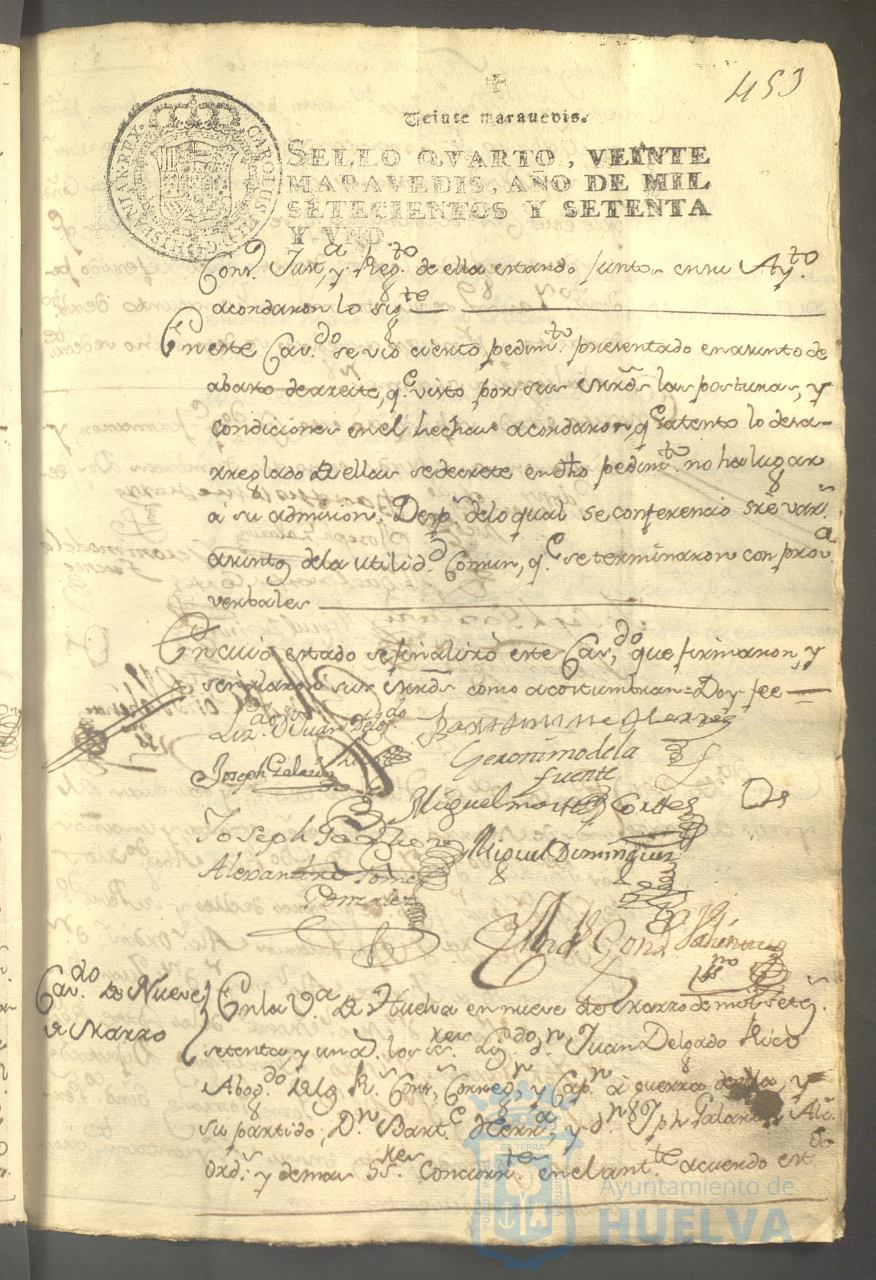 453
Veinte maravedis.
SELLO QVARTO, VEINTE
MARAVEDIS, AÑO DE MIL
SETECIENTOS Y SETENTA
Y VNO
CAROLUS III D G HISPANIAR REX
Conz.º Just.ª y Reg.to de ella estando juntos en su Ay.to
acordaron lo sig.te
En este Cav.do se vio cierto pedim.to presentado en asunto de
abasto de azeite, q.e visto por sus mrds las posturas, y
condiciones en el hechas acordaron, q.e atento lo desa-
rreglado de ellas se decrete en dho pedim.to no ha lugar
a su admision. Desp.s de lo qual se conferencio sre var.s
asuntos de la utilid.d Comun, q.e se terminaron con prov.a
verbales
En cuio estado se finalizó este Cav.do que firmaron, y
señalaron sus mrds como acostumbran = Doy fee
Liz.do Dn Juan Delg.do
Rico
Bartholome Herrera
Joseph Galardi
Geronimo de la
fuente
Miguel Cortes
Joseph
Miguel Dominguez
Alexandro
Gonzalez
Cav.do de Nueve
de Marzo
En la V.a de Huelva en nueve de Marzo de mil setez.s
setenta, y un a.s los ss.res Liz.do Dn Juan Delgado Rico
Abog.do de los R.s Cons.s Correg.r y Cap.n à guerra de ella, y
su partido; Dn Bart.e Herr.a, y dn Jph Galardi Alc.s
Ord.s y demas SS.res Concurr.tes en el ant.te acuerdo est.do
Ayuntamiento de
HUELVA